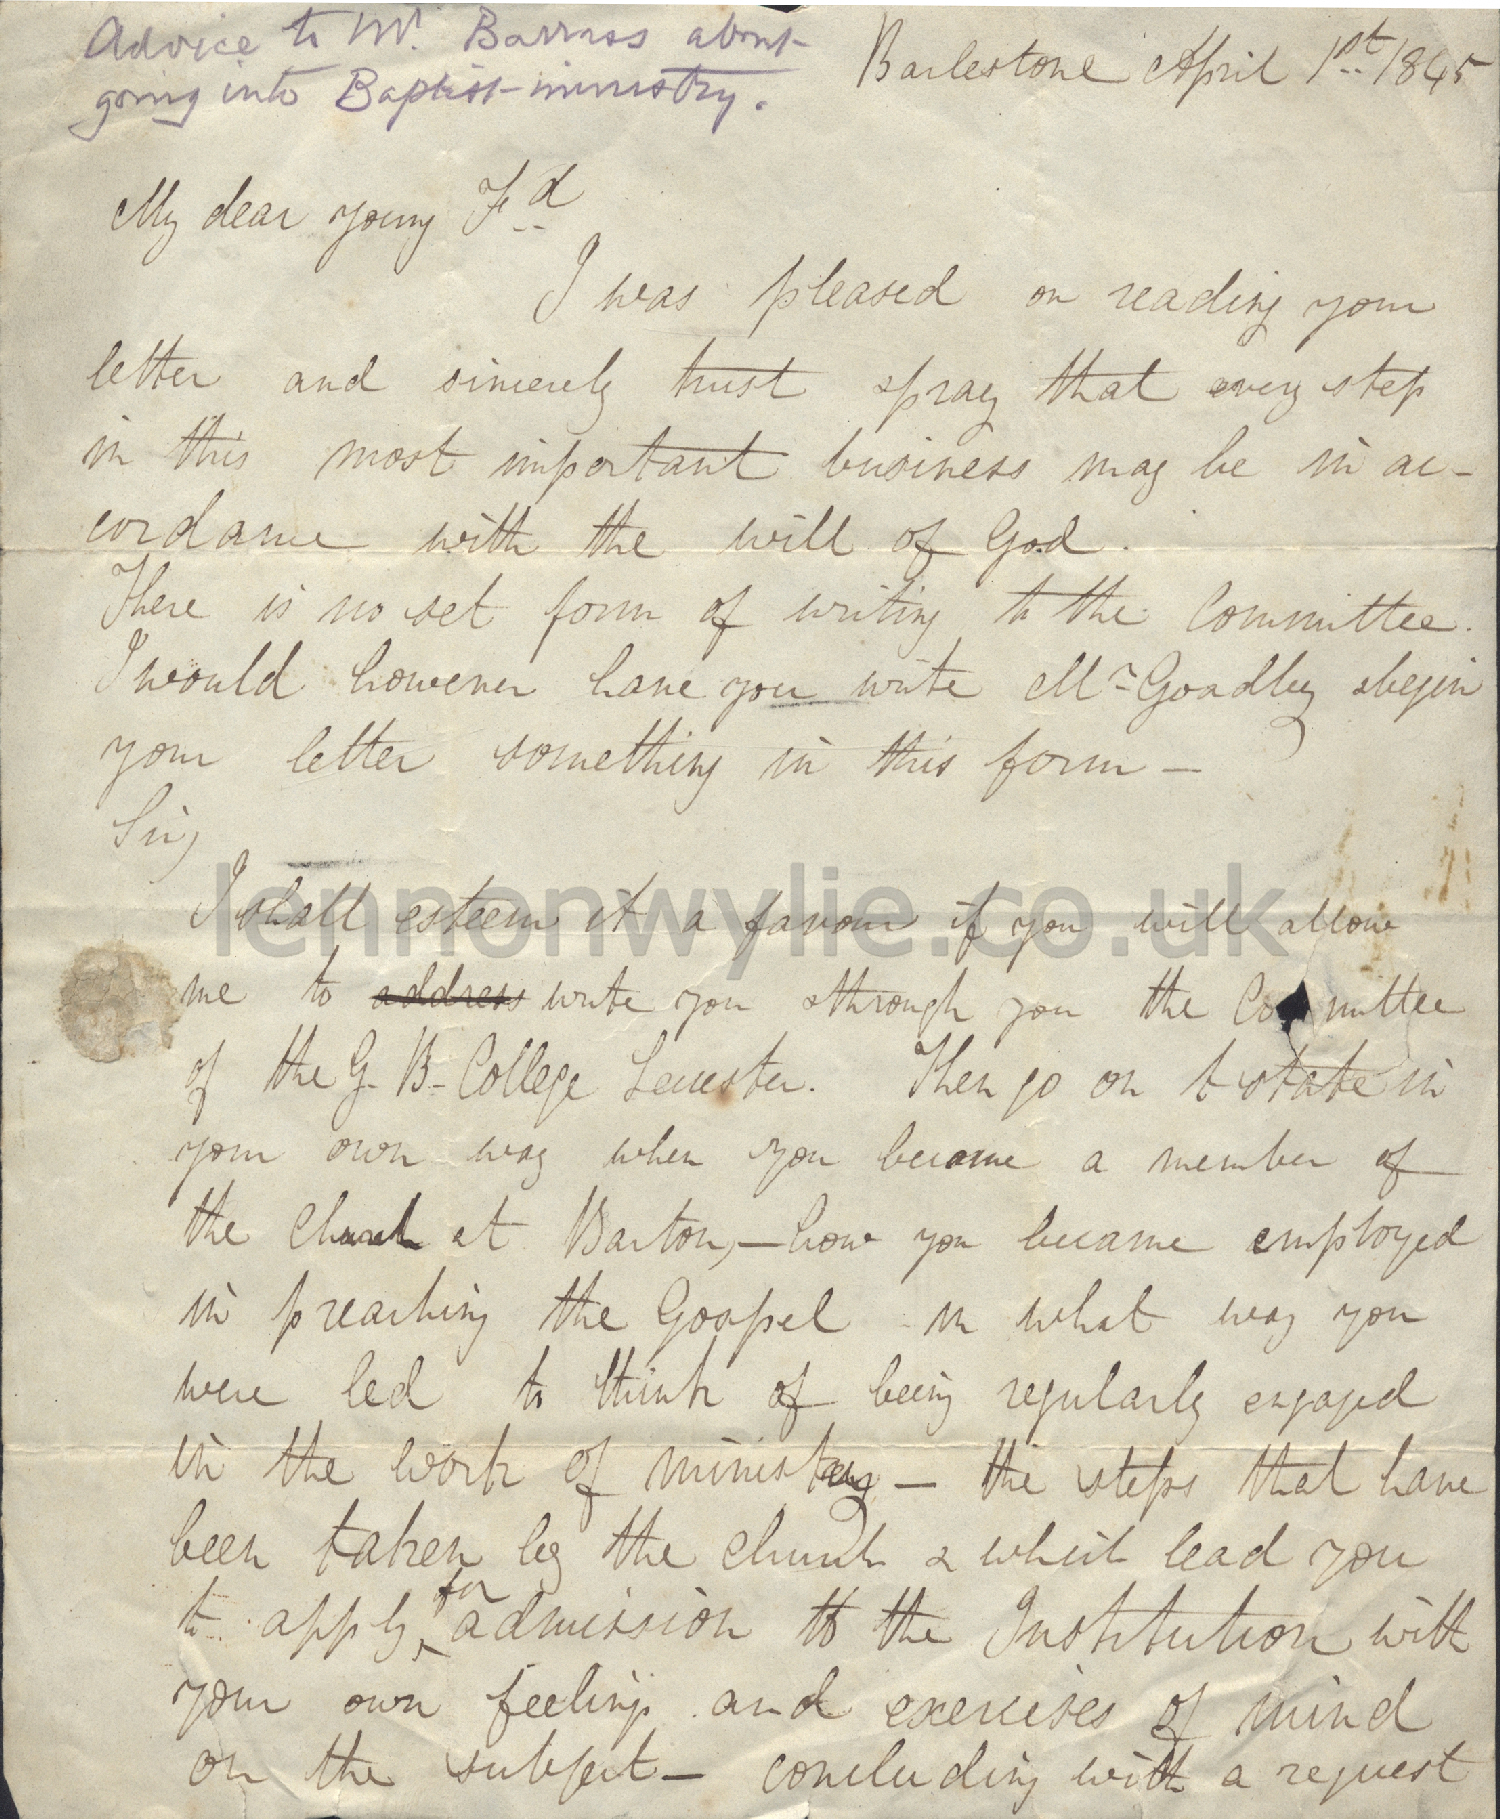 Advice to Mr. Barrass about
going into Baptist ministry.
Barlestone April 1st 1845
My dear young Fd
I was pleased on reading your
letter and sincerely trust & pray that every step
in this most important business may be in ac-
cordance with the will of God.
There is no set form of writing to the Committee.
I would however have you write Mr Goadby & begin
your letter something in this form —
Sir,
lennonwylie.co.uk
I shall esteem it a favour if you will allow
me to address write you & through you the Committee
of the G. B. College Leicester. Then go on to state in
your own way when you became a member of
the Church at Barton, — how you became employed
in preaching the Gospel in what way you
were led to think of being regularly engaged
in the work of ministry — the steps that have
been taken by the Church & which lead you
to apply for admission to the Institution with
your own feelings and exercises of mind
on the subject — concluding with a request